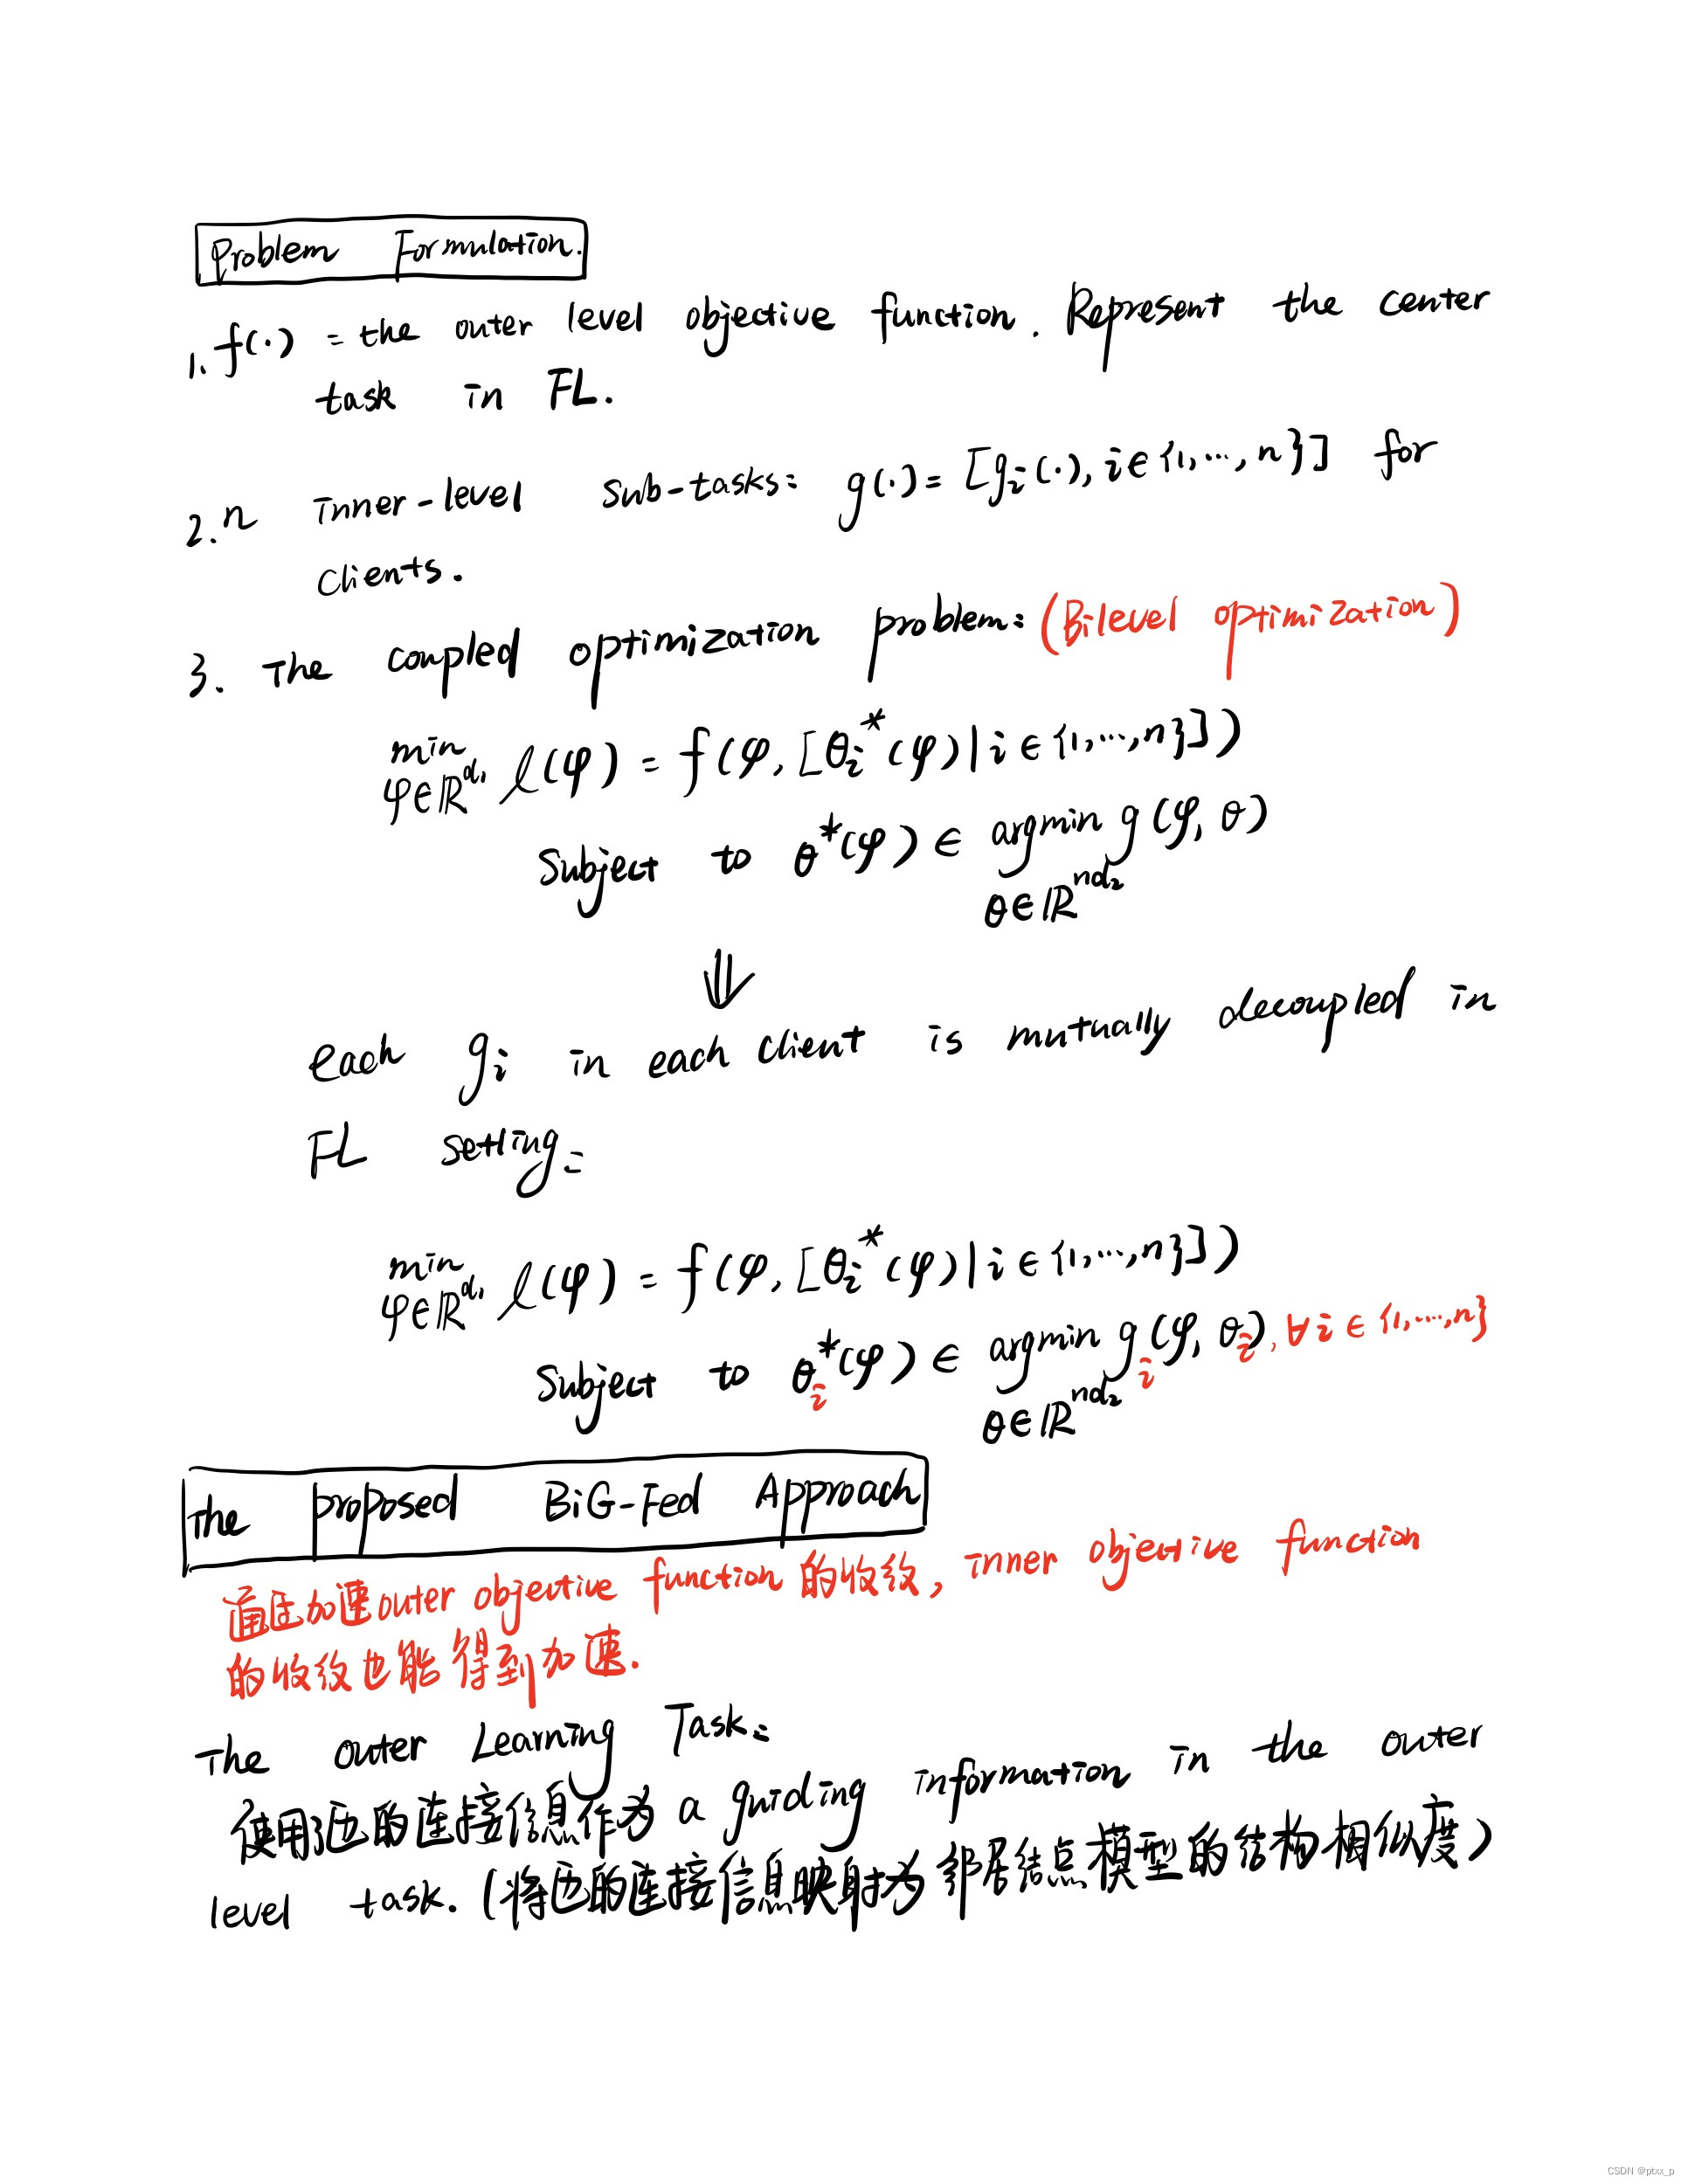 Problem Formulation.
1. f(·) = the outer level objective function. Represent the center
task in FL.
2. n inner-level sub-tasks: g(·) = [gᵢ(·), i∈{1,...,n}] for
clients.
3. The coupled optimization problem: (Bilevel optimization)
min ℓ(φ) = f(φ, [θᵢ*(φ)|i∈{1,...,n}])
φ∈ℝ^d₁
Subject to θ*(φ) ∈ argmin g(φ, θ)
θ∈ℝ^nd₂
⇓
each gᵢ in each client is mutually decoupled in
FL setting:
min ℓ(φ) = f(φ, [θᵢ*(φ)|i∈{1,...,n}])
φ∈ℝ^d₁
Subject to θᵢ*(φ) ∈ argmin gᵢ(φ, θᵢ), ∀i∈{1,...,n}
θ∈ℝ^nd₂
The proposed BiG-Fed Approach
通过加速outer objective function的收敛, inner objective function
的收敛也能得到加速.
The outer Learning Task:
使用了边的连接信息作为 a guiding information in the outer
level task. (将边的连接信息映射为邻居结点模型的结构相似度)
CSDN @ptxx_p